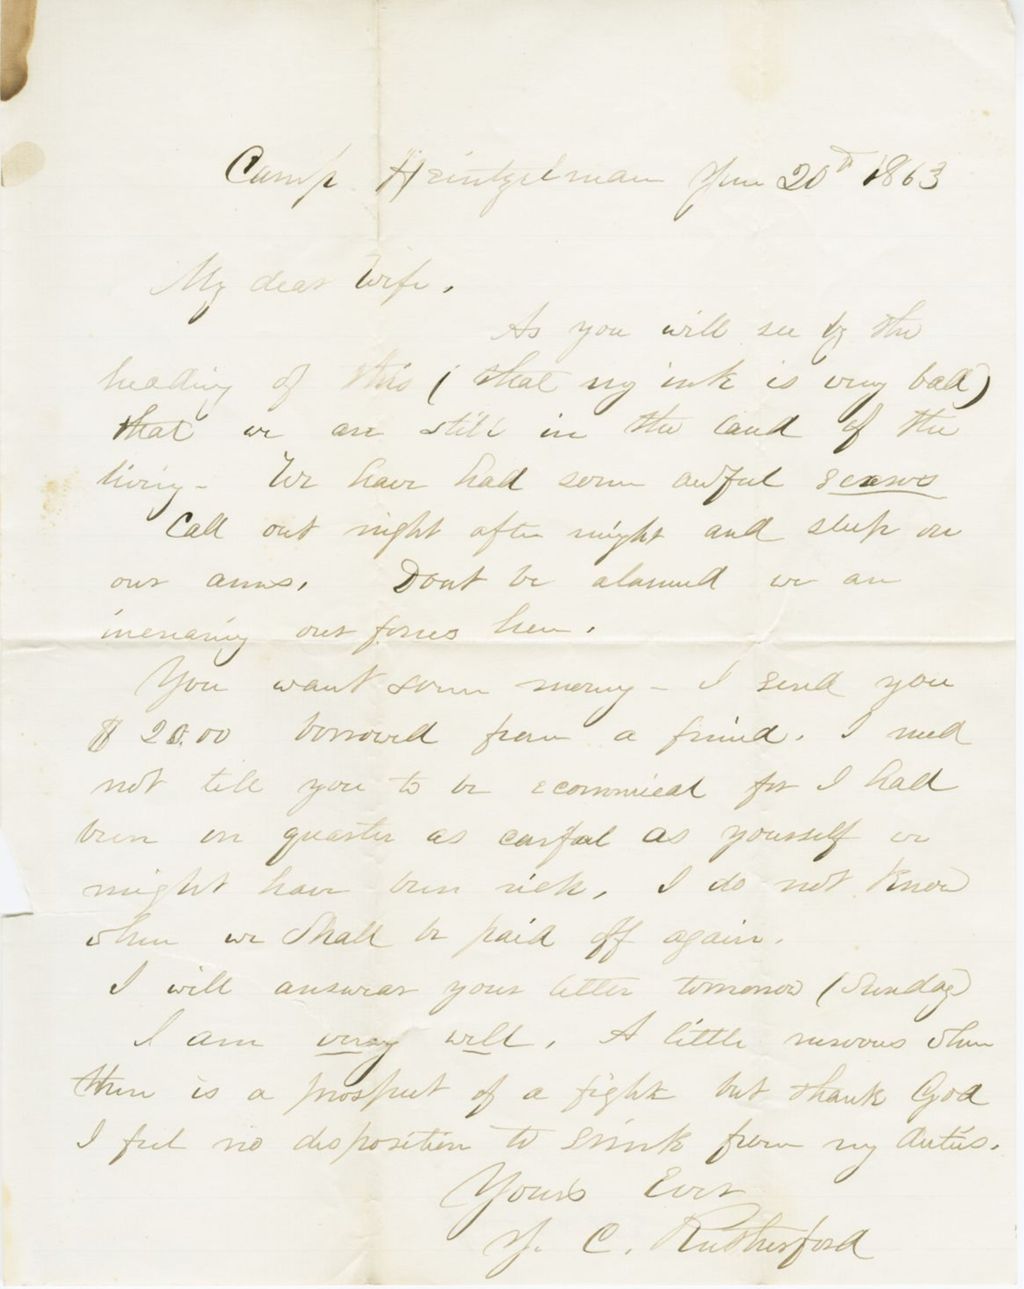 Camp Heintzelman June 20th 1863
My dear Wife,
As you will see by the
heading of this (that my ink is very bad)
that we are still in the land of the
living - We have had some awful scares
Call out night after night and sleep on
our arms. Dont be alarmed we are
increasing our forces here.
You want some money - I send you
$20.00 borrowed from a friend. I need
not tell you to be economical for I had
been on quarter as carful as yourself we
might have been rich. I do not know
when we shall be paid off again.
I will answear your letter tomorrow (Sunday)
I am very well. A little nervous when
there is a prospect of a fight but thank God
I feel no disposition to srink from my duties.
Yours Ever
J. C. Rutherford